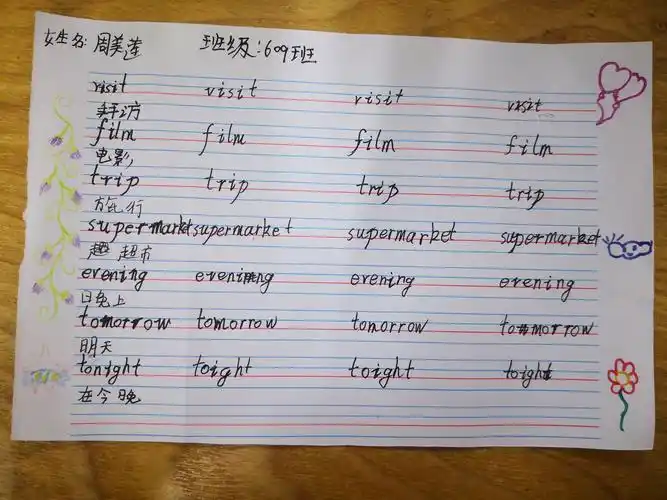 姓名:周美莲 班级:609班
visit visit visit visit
拜访
film film film film
电影
trip trip trip trip
旅行
supermarket supermarket supermarket supermarket
超市
evening evening evening evening
晚上
tomorrow tomorrow tomorrow tomorrow
明天
tonight toight toight toight
在今晚